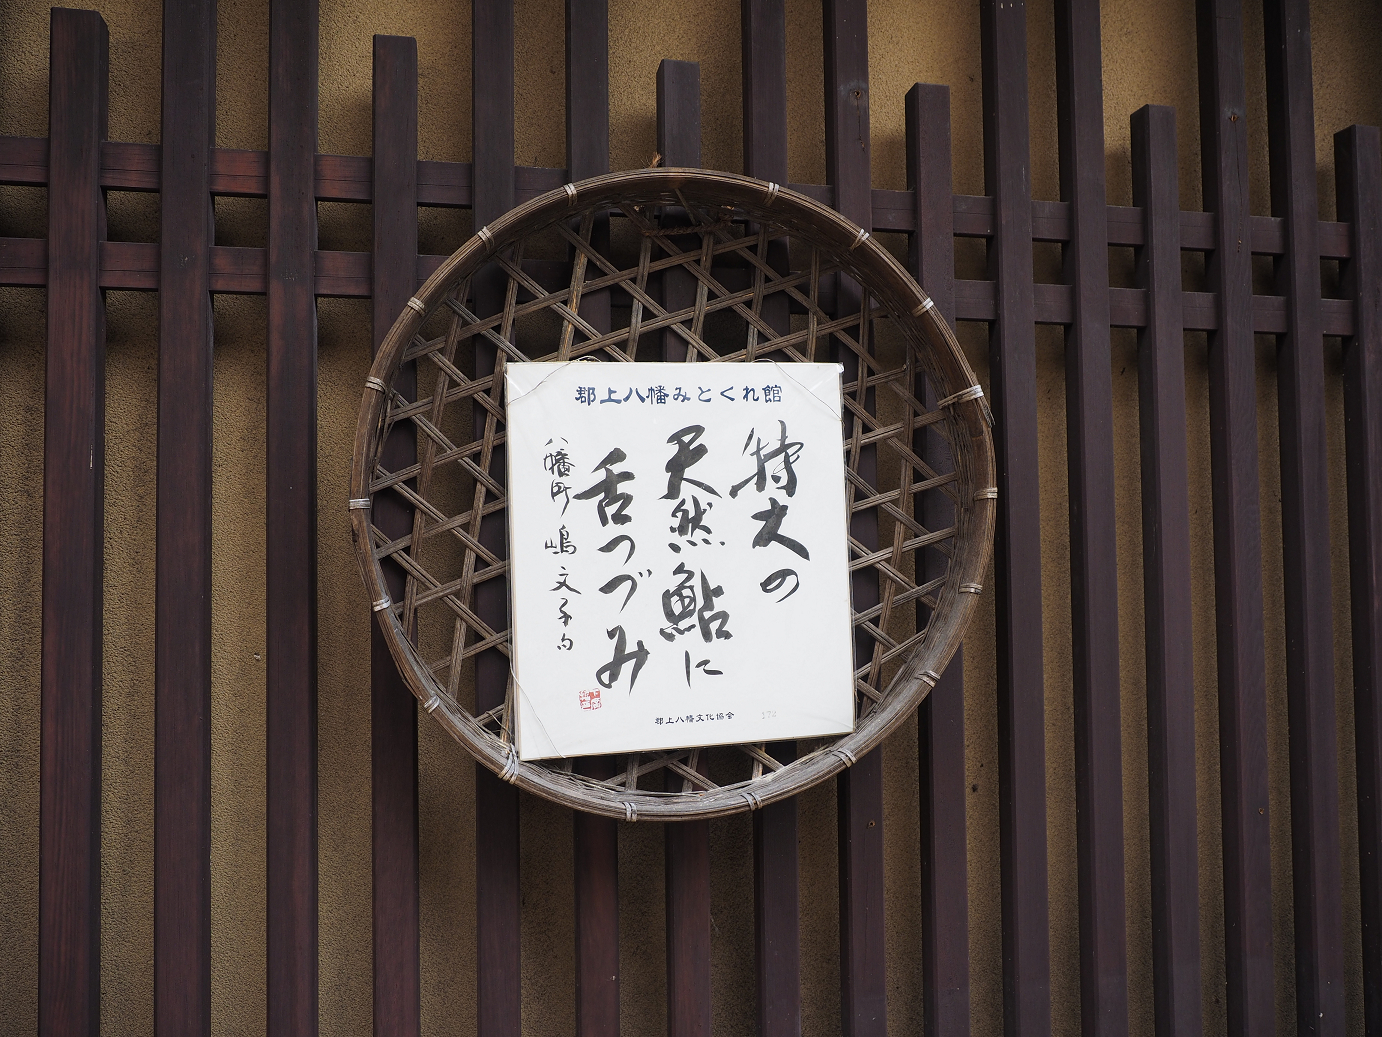 郡上八幡みとくれ館
特大の
天然鮎に
舌つづみ
八幡町 嶋文子
郡上八幡文化協会